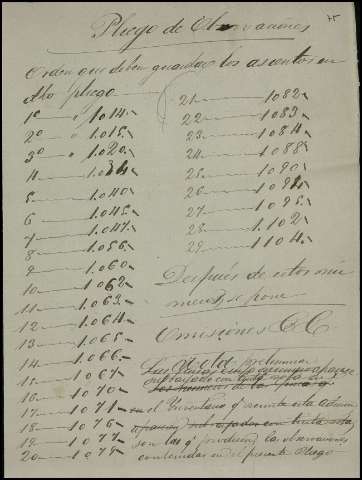 75
Pliego de Observaciones
Orden que deben guardar los asientos en
dho pliego
1º " 1.014.
2º " 1.015.
3º " 1.020.
4 1.034
5 1.040
6 1.045.
7 1.047.
8 1.056.
9 1.060
10 1.062
11 1.063.
12 1.064
13 1.065
14 1.066.
15 1.067
16 1.070
17 1.071
18 1.076
19 1.077
20 1.078
21 1082.
22 1.083
23 1084
24 1.088
25 1.090
26 1.094
27 1.095
28 1.102
29 1104.
Despues de estos nú-
meros, se pone
Omisiones &C
Nota preliminar
en el Inventario q
son las q producen las observaciones
contenidas en el presente Pliego